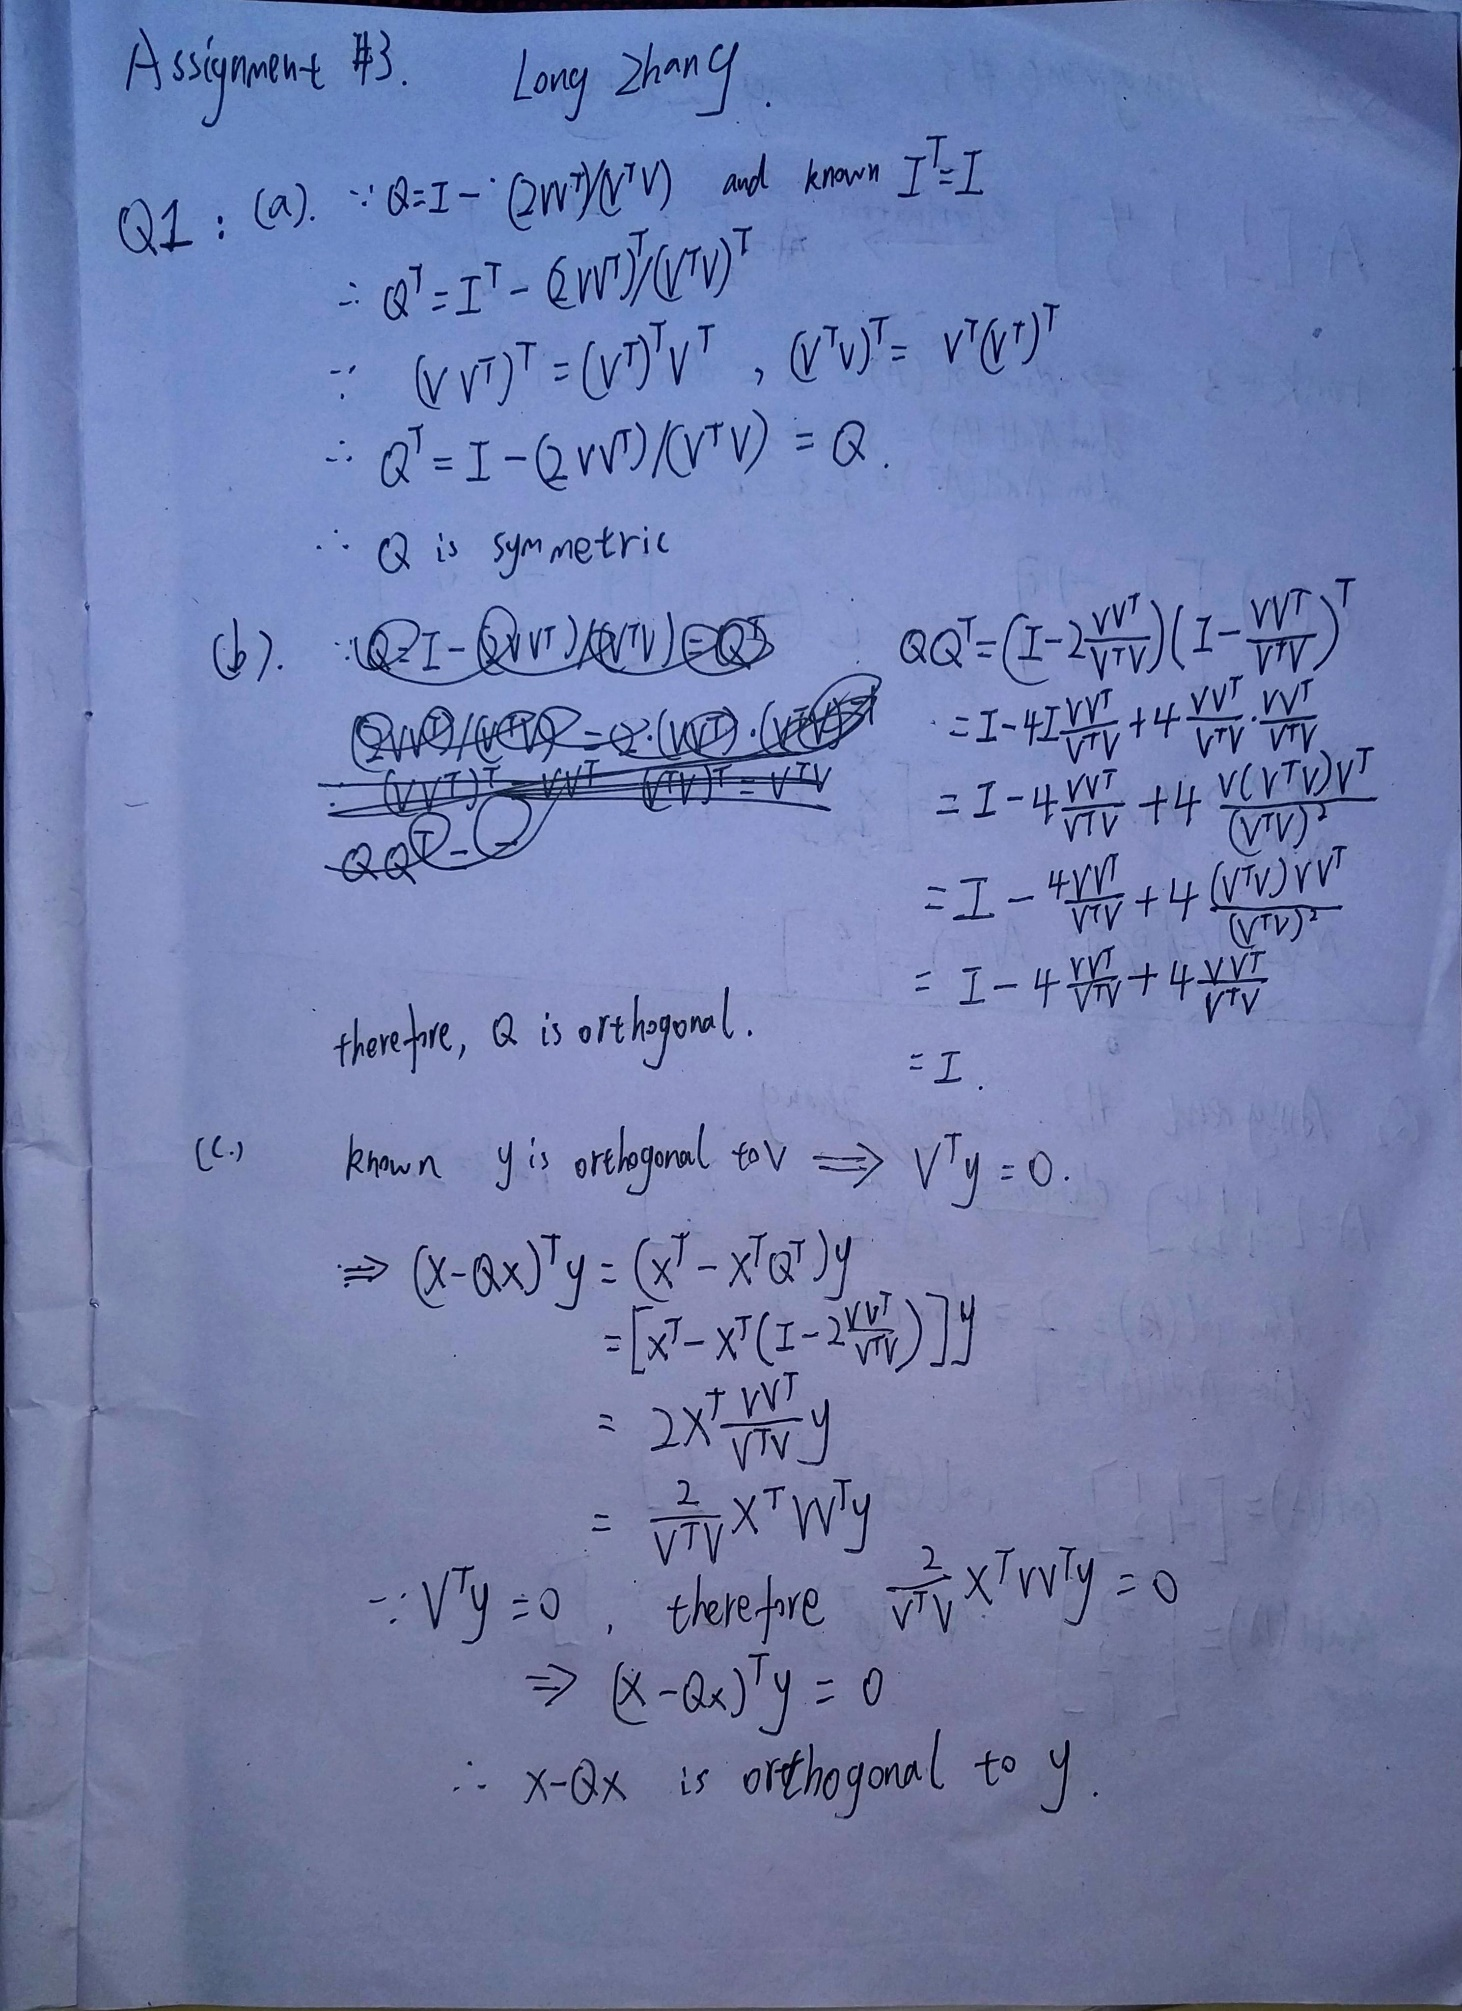 Assignment #3. Long Zhang.
Q1: (a). ∵ Q=I-(2VVᵀ)/(VᵀV) and known Iᵀ=I
∴ Qᵀ=Iᵀ-(2VVᵀ)ᵀ/(VᵀV)ᵀ
∵ (VVᵀ)ᵀ=(Vᵀ)ᵀVᵀ, (VᵀV)ᵀ=Vᵀ(Vᵀ)ᵀ
∴ Qᵀ=I-(2VVᵀ)/(VᵀV)=Q.
∴ Q is symmetric
(b). QQᵀ=(I-2 VVᵀ/VᵀV)(I-VVᵀ/VᵀV)ᵀ
=I-4I VVᵀ/VᵀV+4 VVᵀ/VᵀV·VVᵀ/VᵀV
=I-4 VVᵀ/VᵀV+4 V(VᵀV)Vᵀ/(VᵀV)²
=I-4VVᵀ/VᵀV+4 (VᵀV)VVᵀ/(VᵀV)²
=I-4 VVᵀ/VᵀV+4 VVᵀ/VᵀV
=I.
therefore, Q is orthogonal.
(c.) known y is orthogonal to V ⇒ Vᵀy=0.
⇒ (X-QX)ᵀy=(Xᵀ-XᵀQᵀ)y
=[Xᵀ-Xᵀ(I-2 VVᵀ/VᵀV)]y
=2Xᵀ VVᵀ/VᵀV y
=2/VᵀV XᵀVVᵀy
∵ Vᵀy=0, therefore 2/VᵀV XᵀVVᵀy=0
⇒ (X-QX)ᵀy=0
∴ X-QX is orthogonal to y.